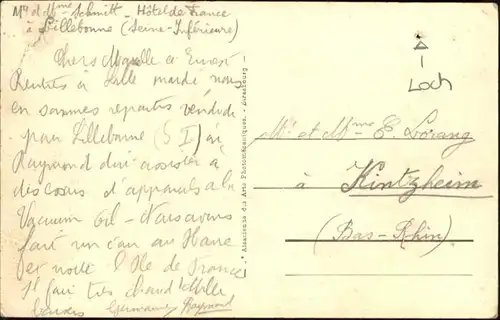 Mr et Mme Schmitt - Hôtel de France
à Lillebonne (Seine-Inférieure)
Chers Marcelle et Ernest
Rentrés à Lille mardi nous
en sommes repartis vendredi
pour Lillebonne (S I) où
Raymond doit assister à
des essais d'appareils à la
Vacuum Oil - Nous avons
fait un saut au Havre
et visité l'Ile de France
Il fait très chaud! Mille
Germaine Raymond
Alsacienne des Arts Photomécaniques. - Strasbourg
Loch
Mr et Mme E. Lorang
à Kintzheim
(Bas-Rhin)